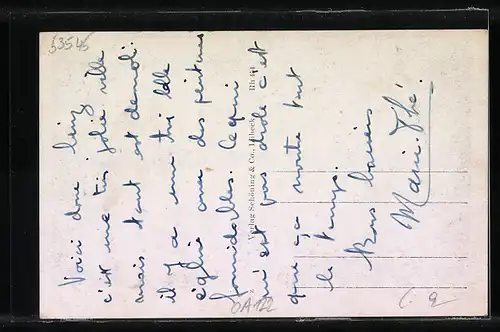 53545
Voici donc
c'est une très jolie ville
mais tout est démoli.
il y a une très belle
église avec des peintures
formidables. Ce qui
n'est pas drôle c'est
que ça monte tout
le temps.
Bons baisers
Marie. Thé.
Verlag Schöning & Co., Lübeck Rh 61
0A122